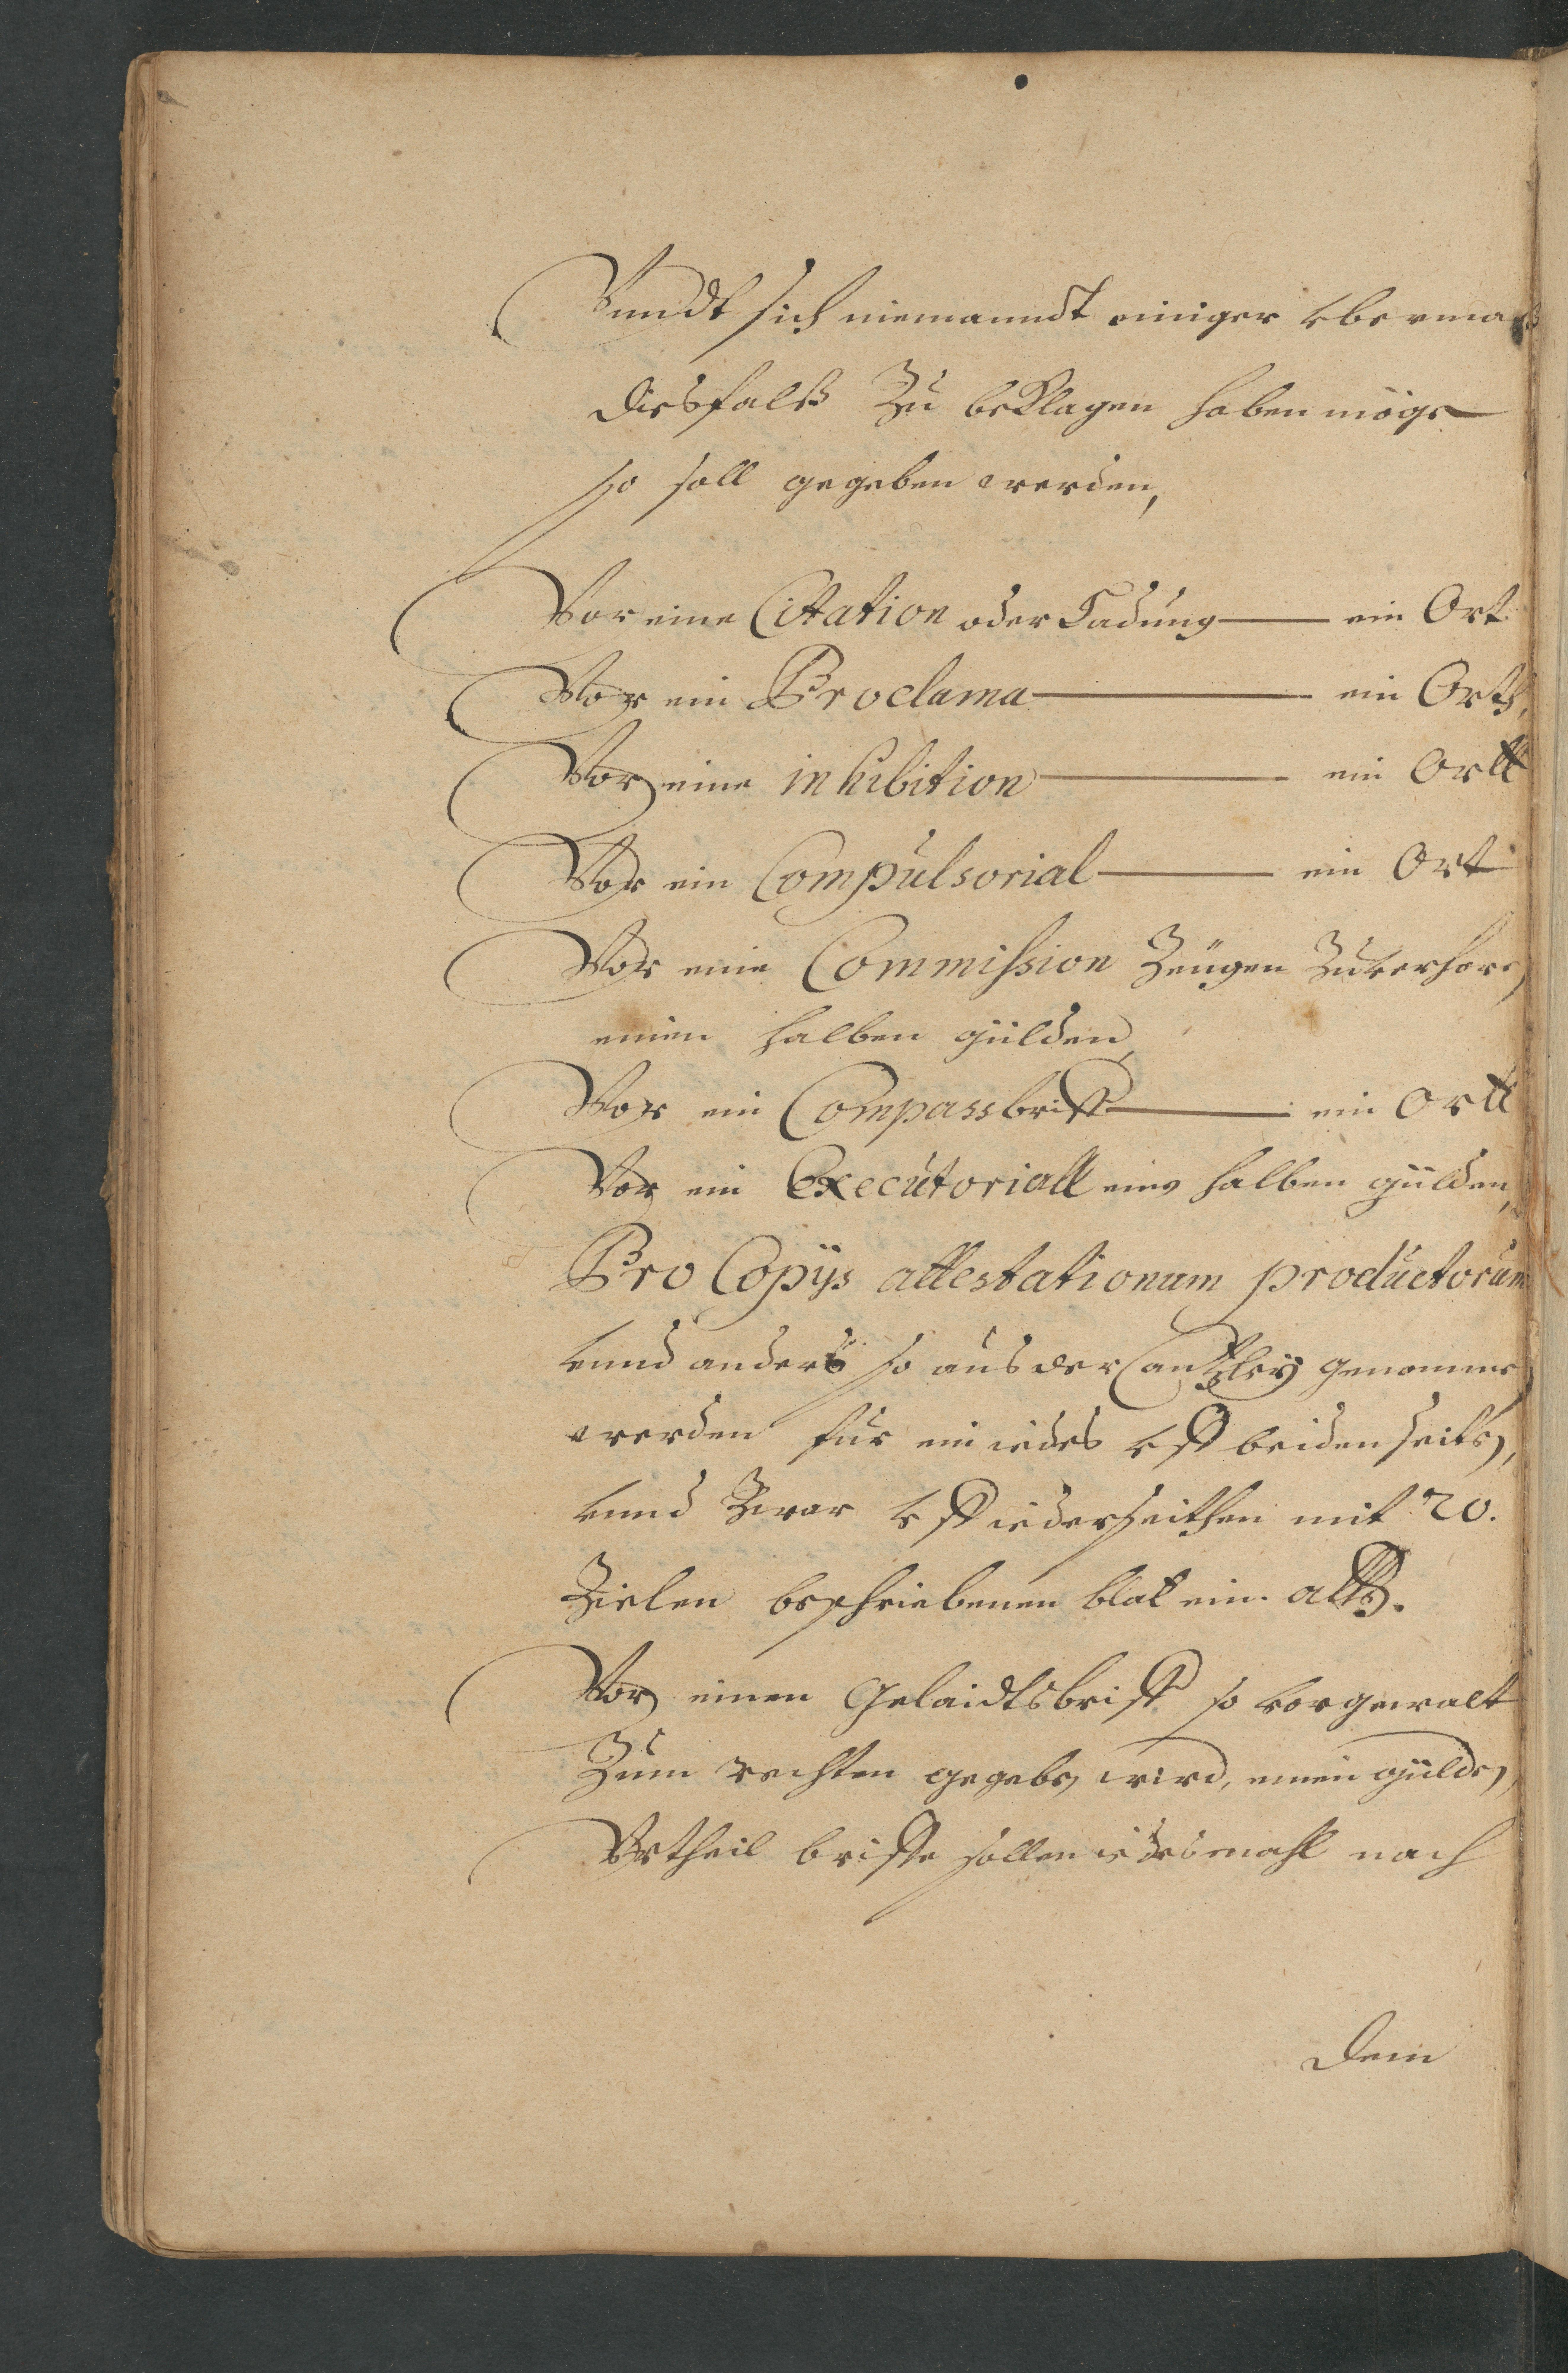 Vnndt sich niemanndt einiger vbermaß
diesfalß Zu beklagen haben möge
so soll gegeben werden,
Vor eine Citation oder Ladung ein Ort
Vor ein Proclama ein Orth,
Vor eine inhibition ein Ortt
Vor ein Compulsorial ein Ort
Vor eine Commission Zeugen Zuverhoren
einen halben gülden,
Vor ein Compassbrieff ein Ortt
Vor ein Executoriall einen halben gülden,
Pro Copijs attestationum productorum
vnnd anders so aus der Cantzley genommen
werden für ein iedes beidenseits,
vnnd Zwar iederseithen mit 20.
Zielen beschriebenen blat ein alb.
Vor einen Gelaidtsbrieff so vor gewalt
Zum rechten gegeben wird, einen gülden,
Vrtheil brieffe sollen iedesmahl nach
Dem